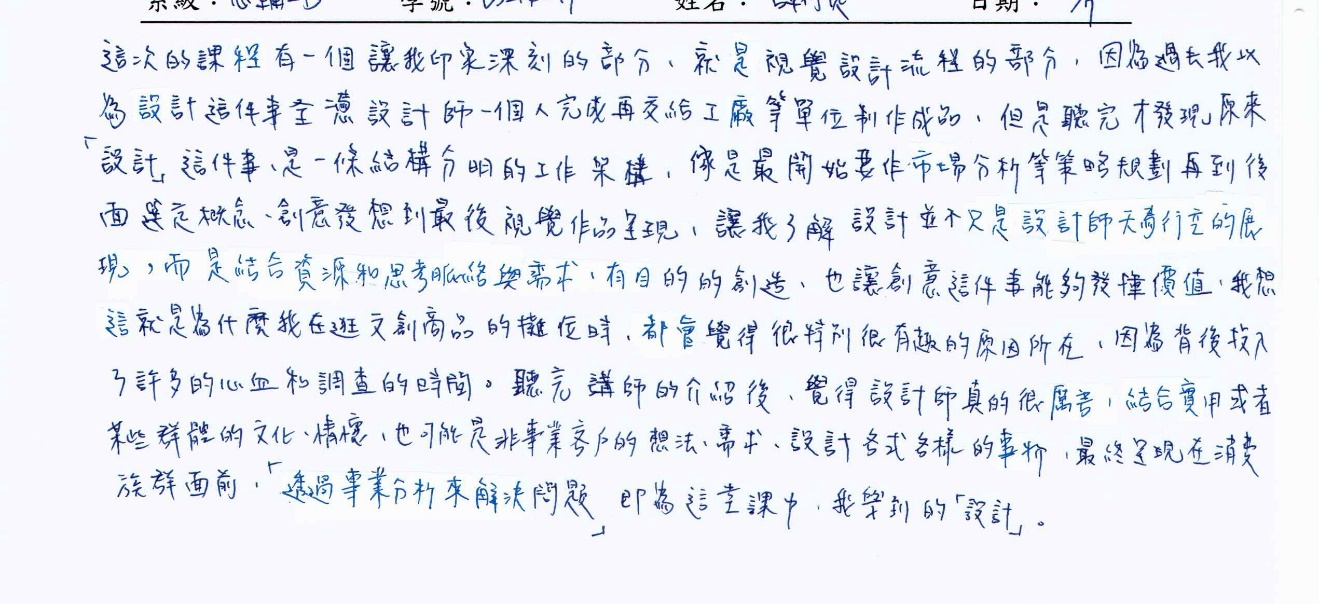 系級： 學號： 姓名： 日期：
這次的課程有一個讓我印象深刻的部分，就是視覺設計流程的部分，因為過去我以
為設計這件事全憑設計師一個人完成再交給工廠等單位制作成品，但是聽完才發現原來
「設計」這件事，是一條結構分明的工作架構，像是最開始要作市場分析等策略規劃再到後
面選定概念、創意發想到最後視覺作品呈現，讓我了解設計並不只是設計師天馬行空的展
現，而是結合資源和思考脈絡與需求，有目的的創造，也讓創意這件事能夠發揮價值，我想
這就是為什麼我在逛文創商品的攤位時，都會覺得很特別很有趣的原因所在，因為背後投入
了許多的心血和調查的時間。聽完講師的介紹後，覺得設計師真的很厲害，結合實用或者
某些群體的文化、情懷，也可能是非專業客戶的想法、需求，設計各式各樣的事物，最終呈現在消費
族群面前，「透過專業分析來解決問題」即為這堂課中，我學到的「設計」。